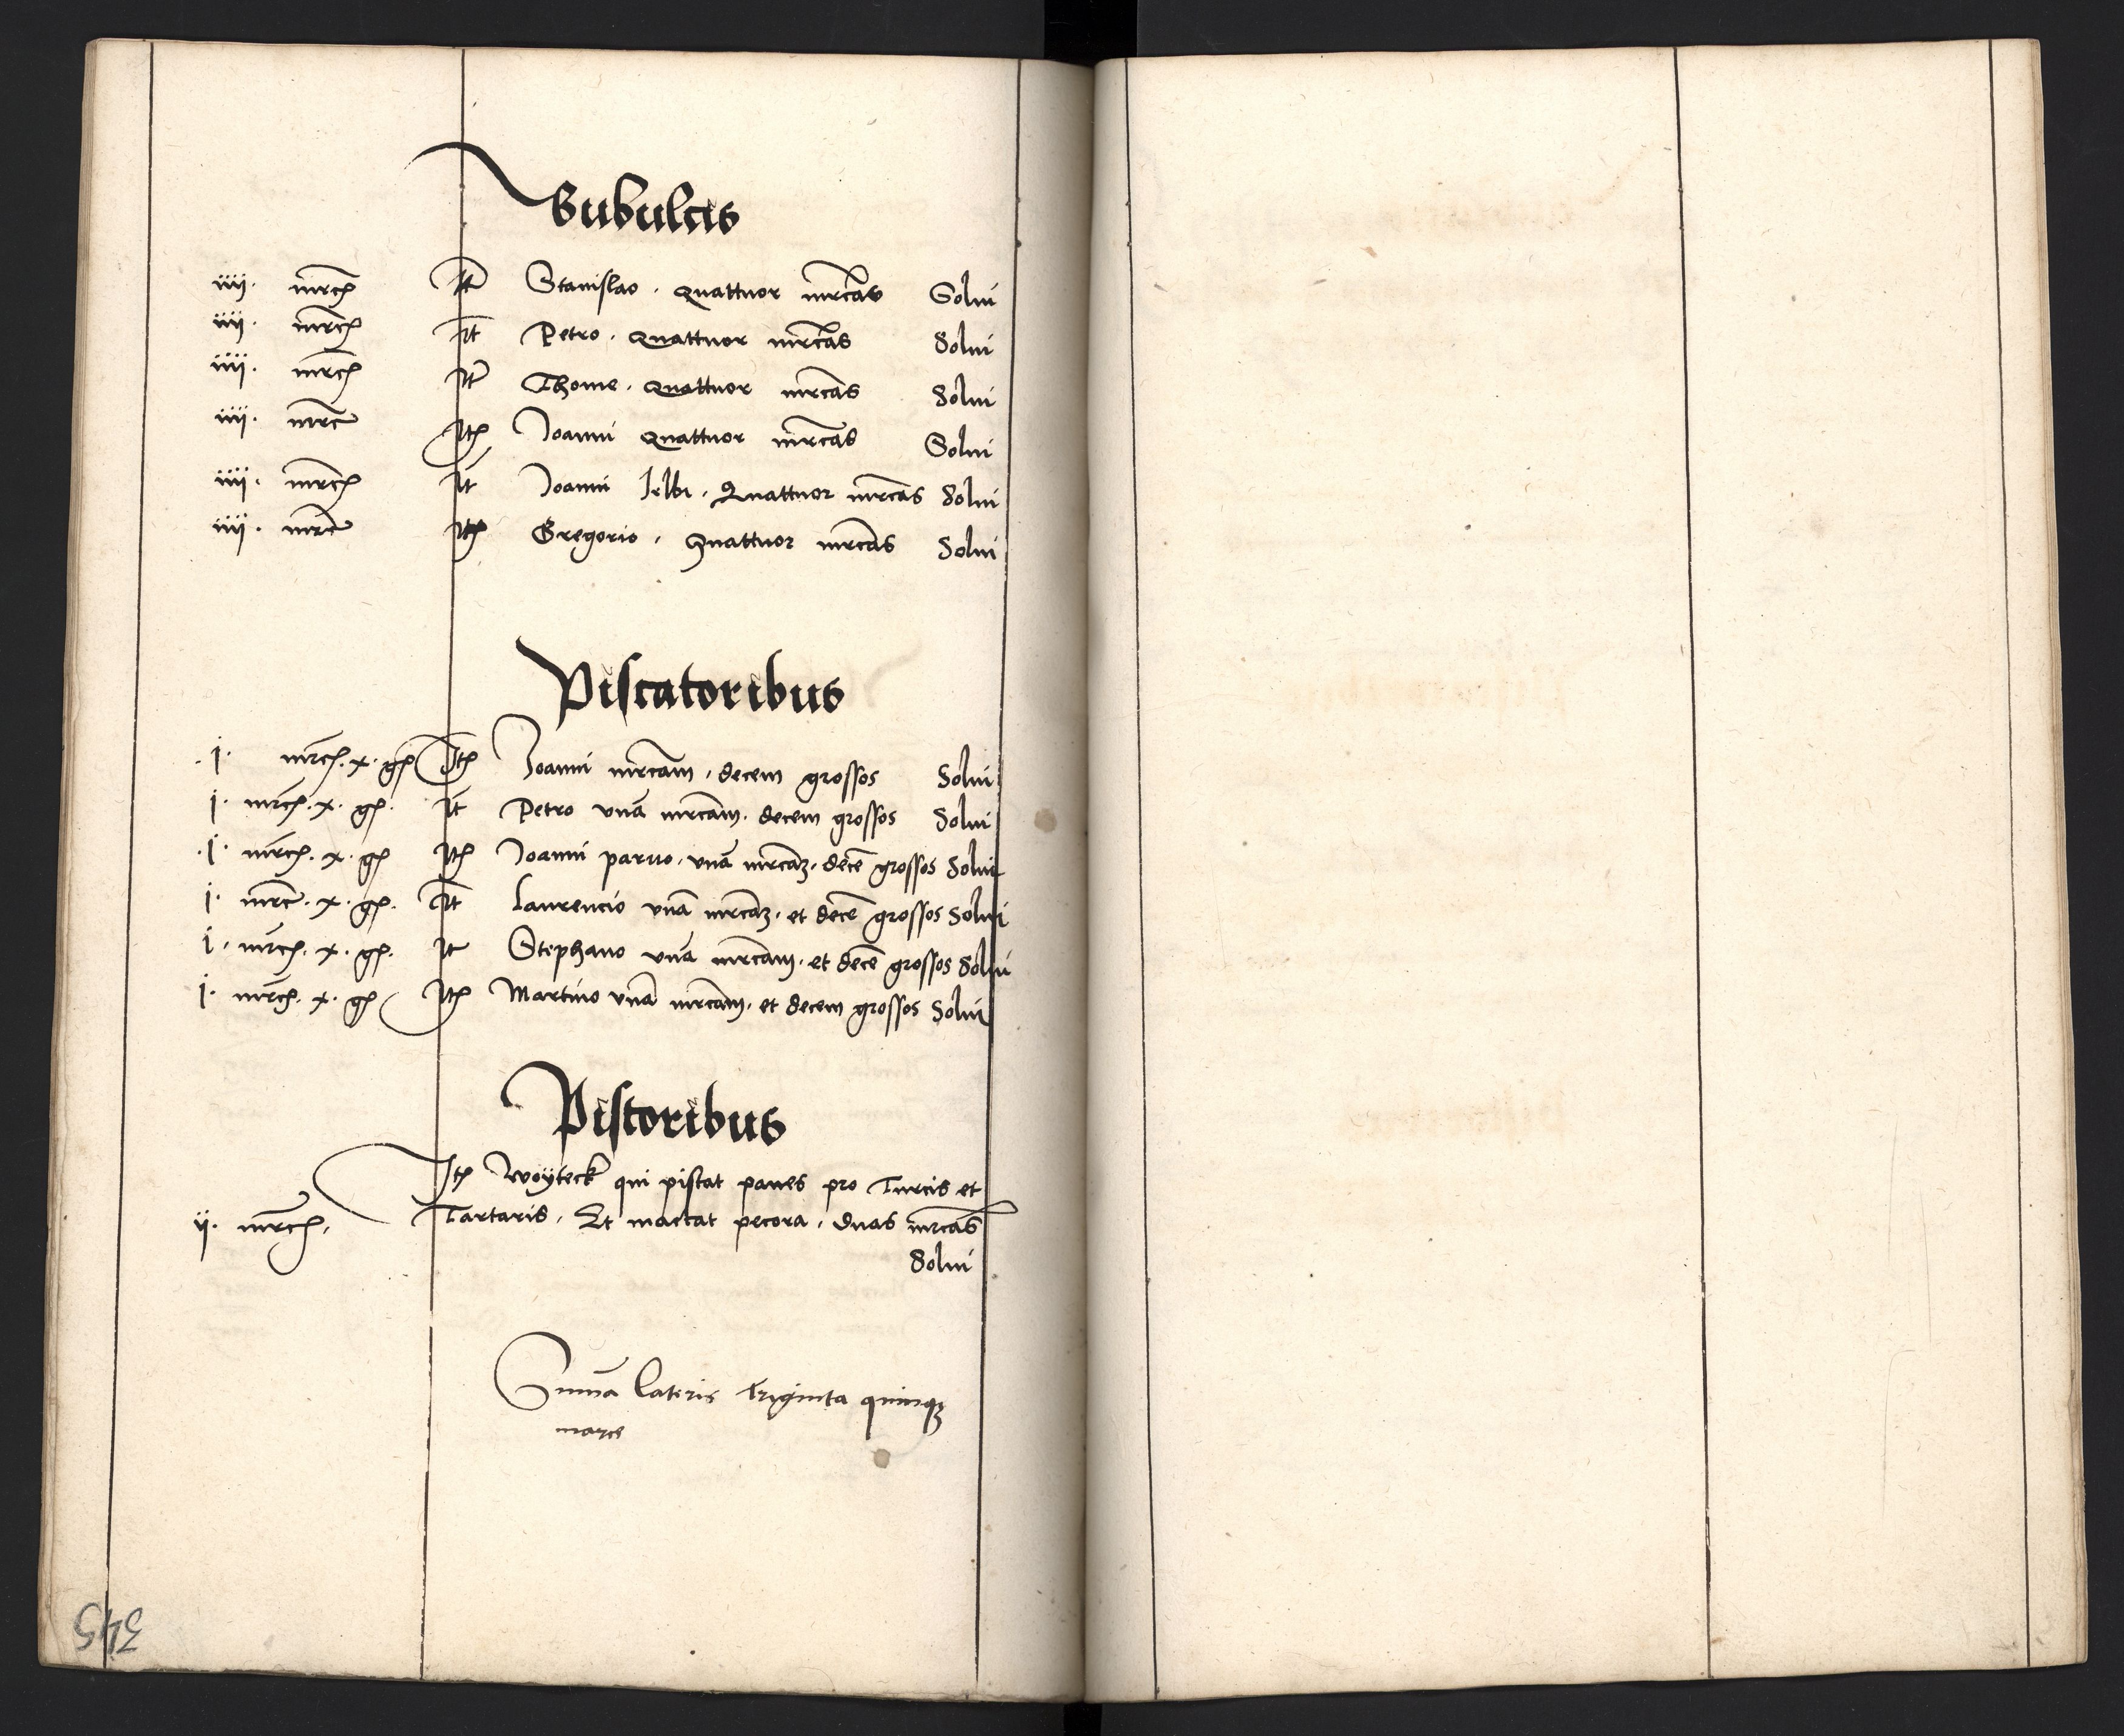 Subulcis
iiij. mrc Jt Stanislao. quattuor mrcas Solui
iiij. mrc Jt Petro. quattuor mrcas Solui
iiij. mrc Jt Thome. quattuor mrcas Solui
iiij. mrc Jt Joanni quattuor mrcas Solui
iiij. mrc Jt Joanni Quattuor mrcas Solui
iiij. mrc Jt Gregorio. Quattuor mrcas Solui
Piscatoribus
.j. mrc. x. gr Jt Joanni mrcam. decem grossos Solui
j. mrc. x. gr. Jt Petro vnā mrcam. decem grossos Solui
.j. mrc. x. gr Jt Joanni paruo. vnā mrcaz. decē grossos Solui
j. mrc. x. gr. Jt Laurencio vnā mrcaz. et decē grossos Solui
j. mrc. x. gr. Jt Stephano vnā mrcam. et decē grossos Solui
j. mrc. x. gr Jt Martino vnā mrcam. et decem grossos Solui
Pistoribus
Jt Woÿteck qui pistat panes pro Turcis et
ij. mrc. Tartaris. Et mactat pecora. duas mrcas
Solui
Sumā lateris triginta quinqz
marce
345